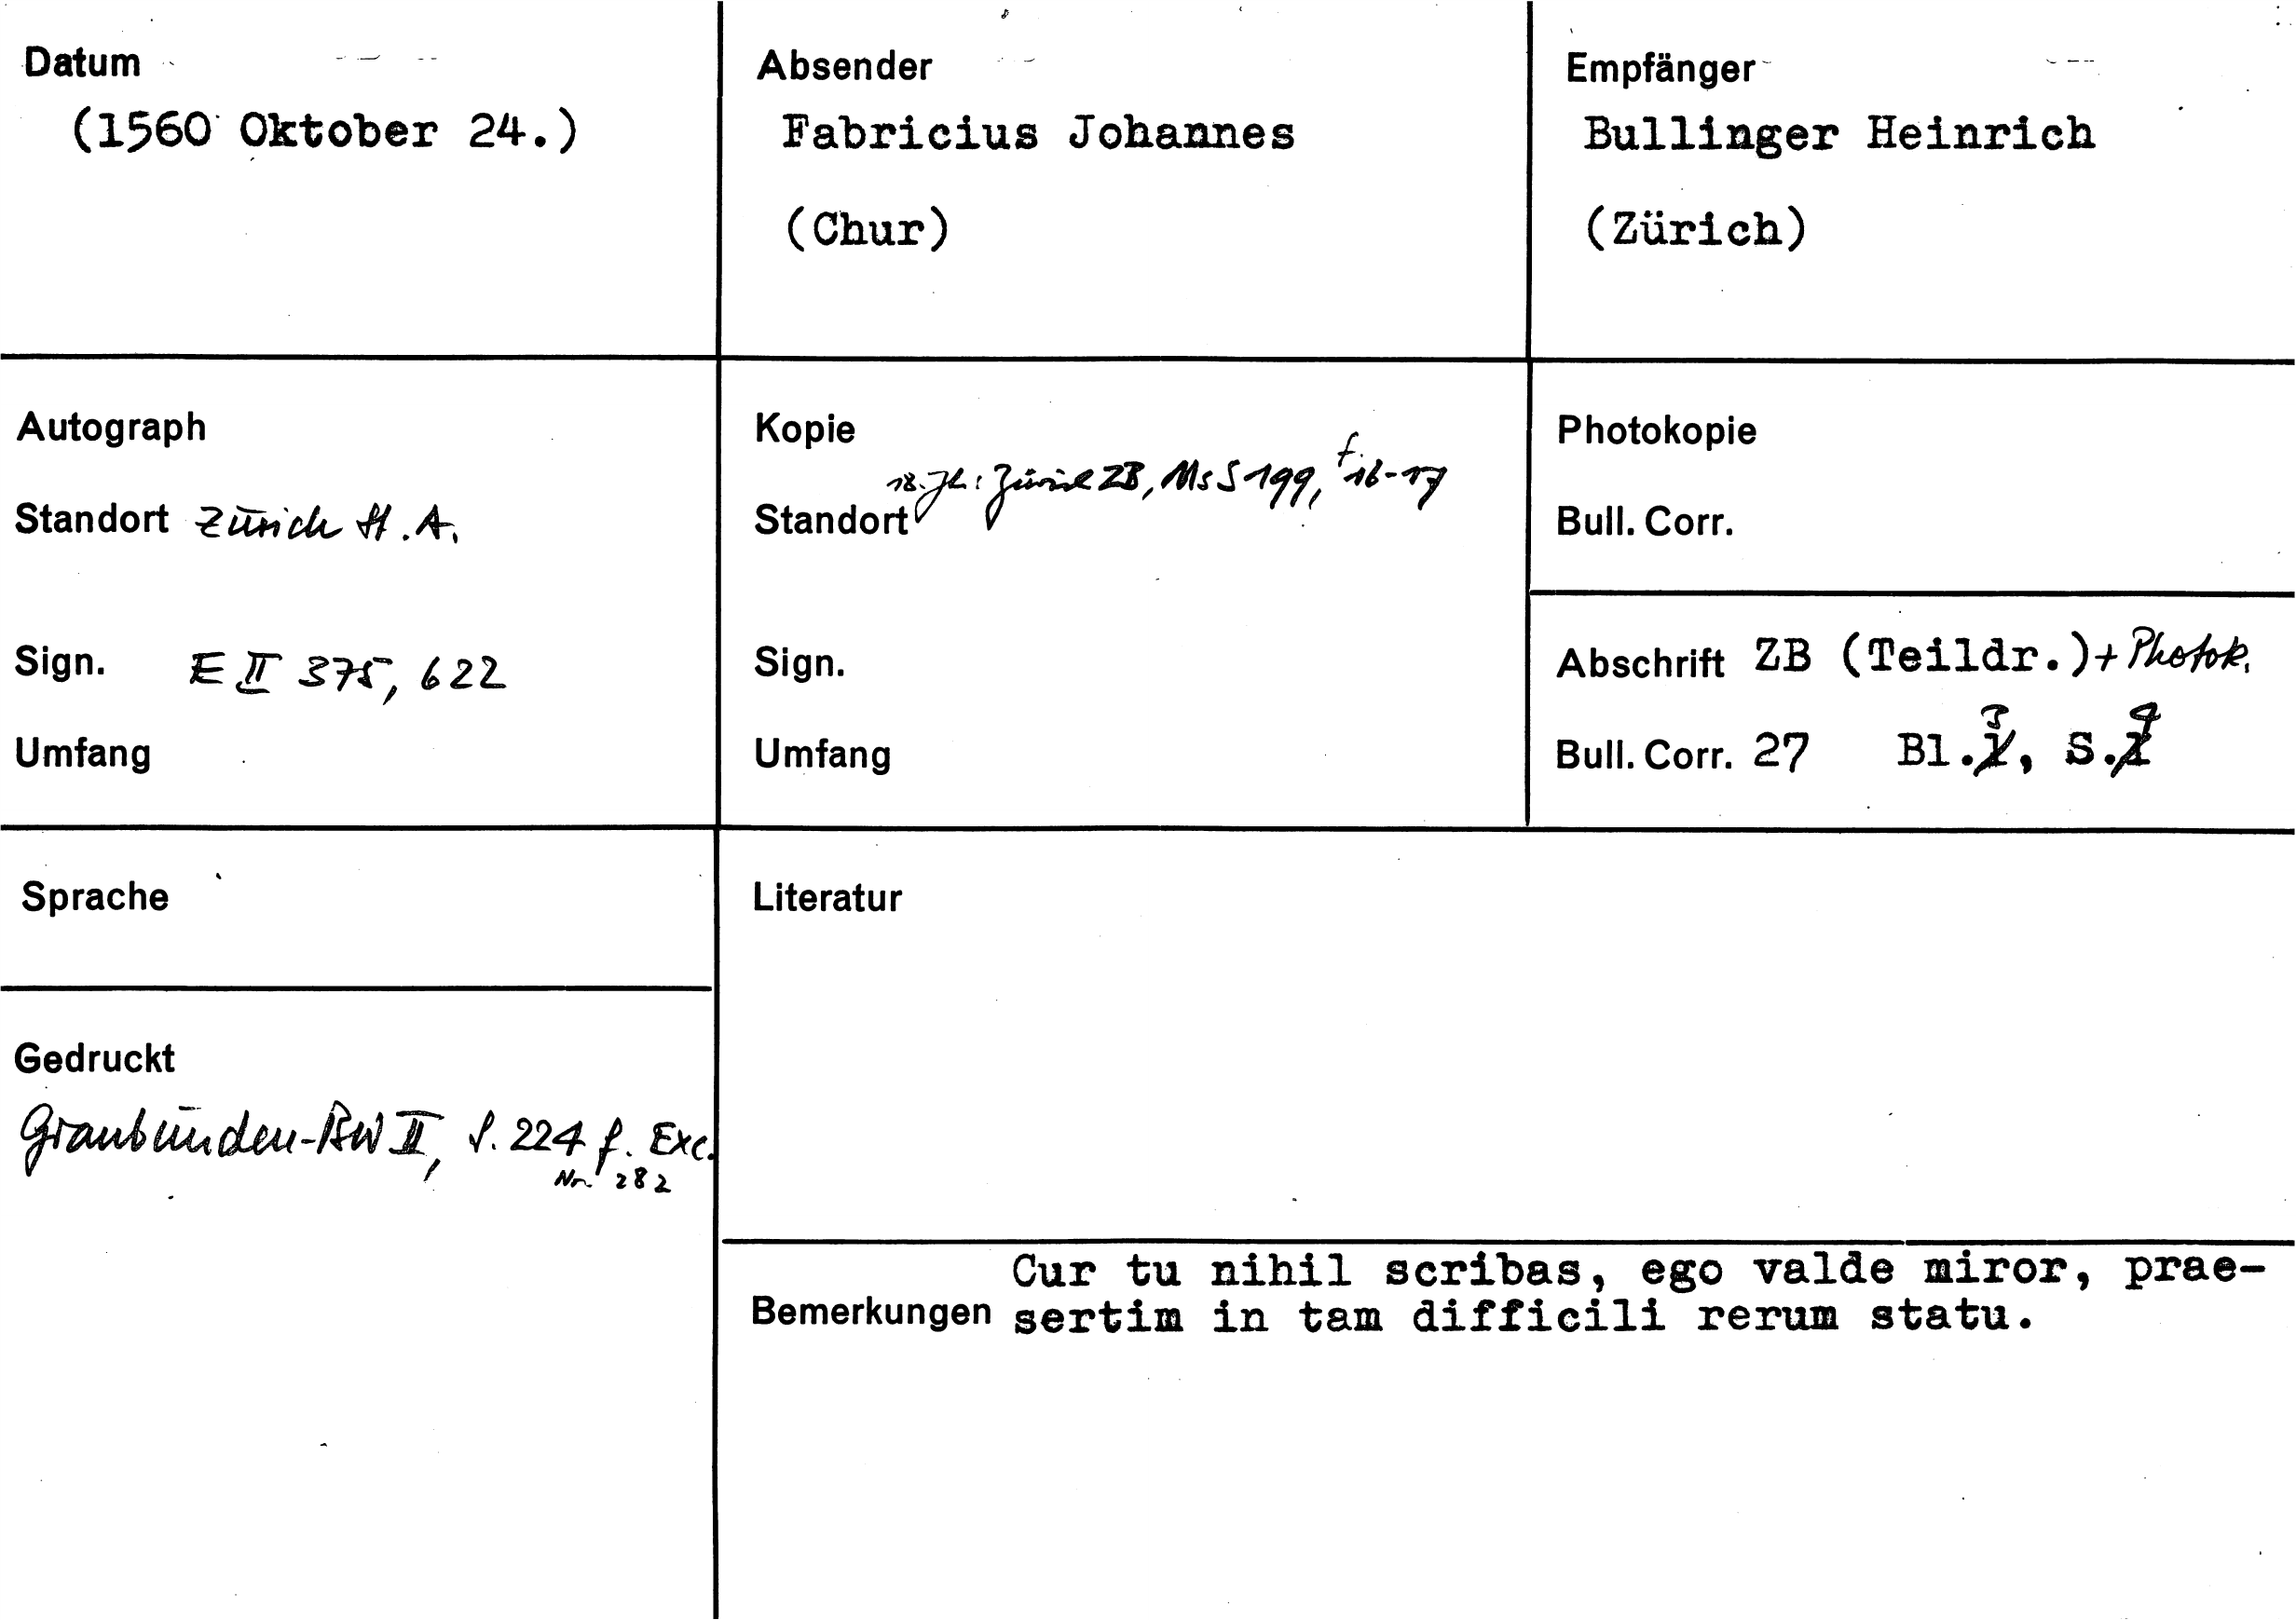 Datum
(1560 Oktober 24.)
Absender
Fabricius Johannes
(Chur)
Empfänger
Bullinger Heinrich
(Zürich)
Autograph
Standort Zürich St.A.
Sign. E II 375, 622
Umfang
Kopie
18. Jh.: Zürich ZB, Ms S 199, f. 16-17
Standort
Sign.
Umfang
Photokopie
Bull. Corr.
Abschrift ZB (Teildr.)+Photok.
Bull. Corr. 27 Bl. 3, S.
Sprache
Gedruckt
Graubünden-BW II, S. 224 f. Exc.
Nr. 282
Literatur
Cur tu nihil scribas, ego valde miror, prae-
Bemerkungen sertim in tam difficili rerum statu.